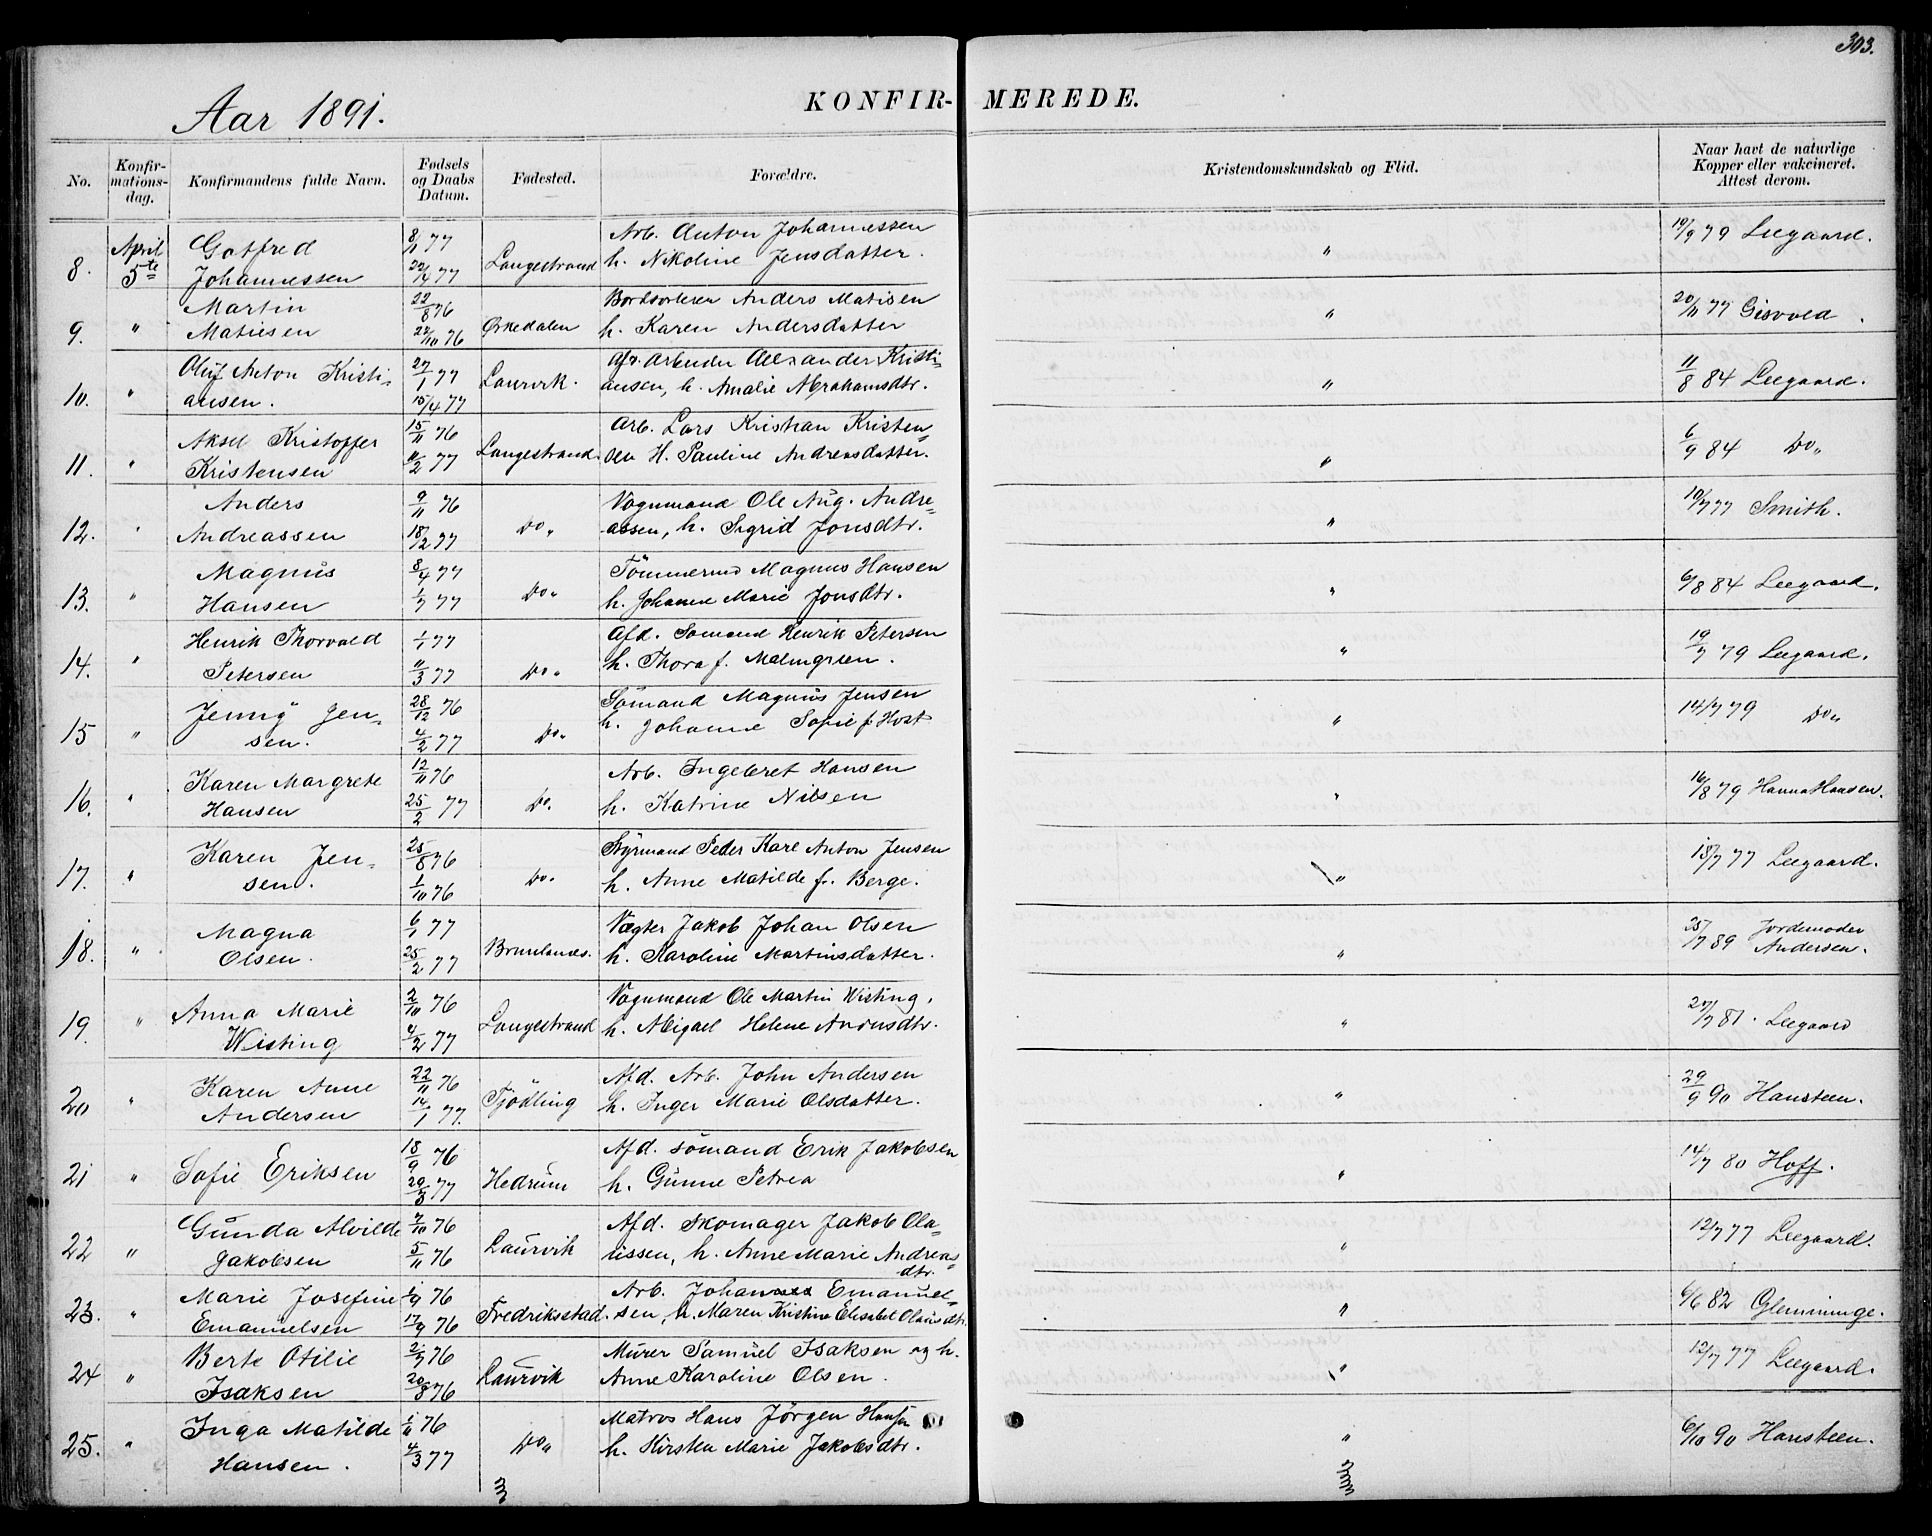 303.
Aar 1891.
KONFIR- MEREDE.
No. Konfir-mations-dag. Konfirmandens fulde Navn. Fødsels og Daabs Datum. Fødested. Forældre. Kristendomskundskab og Flid. Naar havt de naturlige Kopper eller vakcineret. Attest derom.
April Gotfred 8/1 77 Arb. Anton Johannessen 19/9 79 Leegaard.
8. 5te Johannessen 22/4 77 Langestrand h. Nikoline Jensdatter. "
Martin 22/8 76 Anders Matisen 20/11 77 Gisvold.
9. " Matiesen 22/10 76 Ørkedalen h. Karen Andersdatter "
Oluf Anton Kristi- 27/1 77 arbeider Alexander Kristi- 11/8 84 Leegaard.
10. " ansen. 15/4 77 Laurvik. ansen, h. Amalie Abrahamsdtr. "
Aksel Kristoffer 15/11 76 Arb. Lars Kristian Kristen= 6/9 84 Do„
11. " Kristensen 11/2 77 Langestrand. sen H. Pauline Andreasdatter. "
Anders 9/11 76 Vognmand Ole Aug. Andre= 10/7 77 Smith.
12. " Andreassen 18/2 77 Do„ assen, h. Sigrid Jonsdtr. "
Magnus 8/4 77 Tömmermd Magnus Hansen 6/8 84 Leegaard.
13. " Hansen 1/7 77 Do„ h. Johanne Marie Jonsdtr. "
Henrik Thorvald 1/1 77 Afd. Sømand Henrik Petersen 19/7 79 Leegaard.
14. " Petersen 11/3 77 Do„ h. Thora f. Malmgreen. "
Jenny Jen= 28/12 76 Sömand Magnus Jensen 14/7 79 Do„
15 " sen. 4/2 77 Do„ h. Johanne Sofie f. Host "
Karen Margrete 12/11 76 Arb. Ingebret Hansen 16/8 79 Hanna Hansen.
16. " Hansen 25/2 77 Do. h. Katrine Nilsen "
Karen Jen= 25/8 76 Styrmand Peder Karl Anton Jensen 18/7 77 Leegaard.
17. " sen. 1/10 76 Do. h. Anne Matilde f. Berge. "
Magna 6/1 77 Vægter Jakob Johan Olsen 25/7 89 Jordemoder
18. " Olsen. 25/2 77 Brunlanes. h. Karoline Martinsdatter. " Andersen.
Anna Marie 2/10 76 Vognmand Ole Martin Wisting, 27/7 81. Leegaard
19. " Wisting 4/2 77 Langestrand h. Abigael Helene "
Karen Anne 22/11 76 Afd. Arb. John Andersen 29/9 90 Hansteen.
20 " Andersen 14/1 77. Tjödling h. Inger Marie Olsdatter. "
Sofie Eriksen 18/9 76 Afd. sömand Erik Jakobsen 14/7 80 Hoff.
21 " 29/3 77 Hedrum h. Gunne Petrea "
Gunda Alvilde 7/10 76 Afd. Skomager Jakob Ola= 12/7 77 Leegaard.
22 " Jakobsen 5/11 76 Laurvik ussen, h. Anne Marie Andreas= dtr. "
Marie Josefine 1/9 76 Arb. Johannes Emanuel= 6/6 82 Glemminge.
23. " Emanuelsen 17/9 76 Fredriksstad. sen, h. Maren Kristine Elisabet Olausdtr. "
Berte Otilie 2/7 76 Murer Samuel Isaksen og h. 12/7 77 Leegaard.
24 " Isaksen 20/8 76 Laurvik Anne Karoline Olsen. "
Inga Matilde 1/11 76 Matros Hans Jörgen Hansen 6/10 90 Hansteen.
25. " Hansen. 4/3 77 Do„ h. Kirsten Marie Jakobsdtr. "